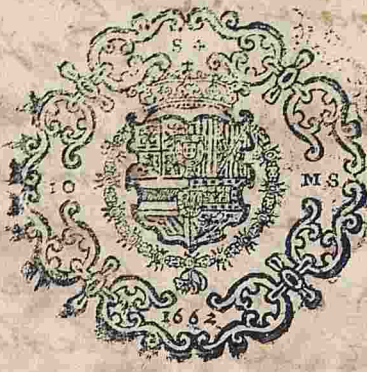 S
10 MS
1662